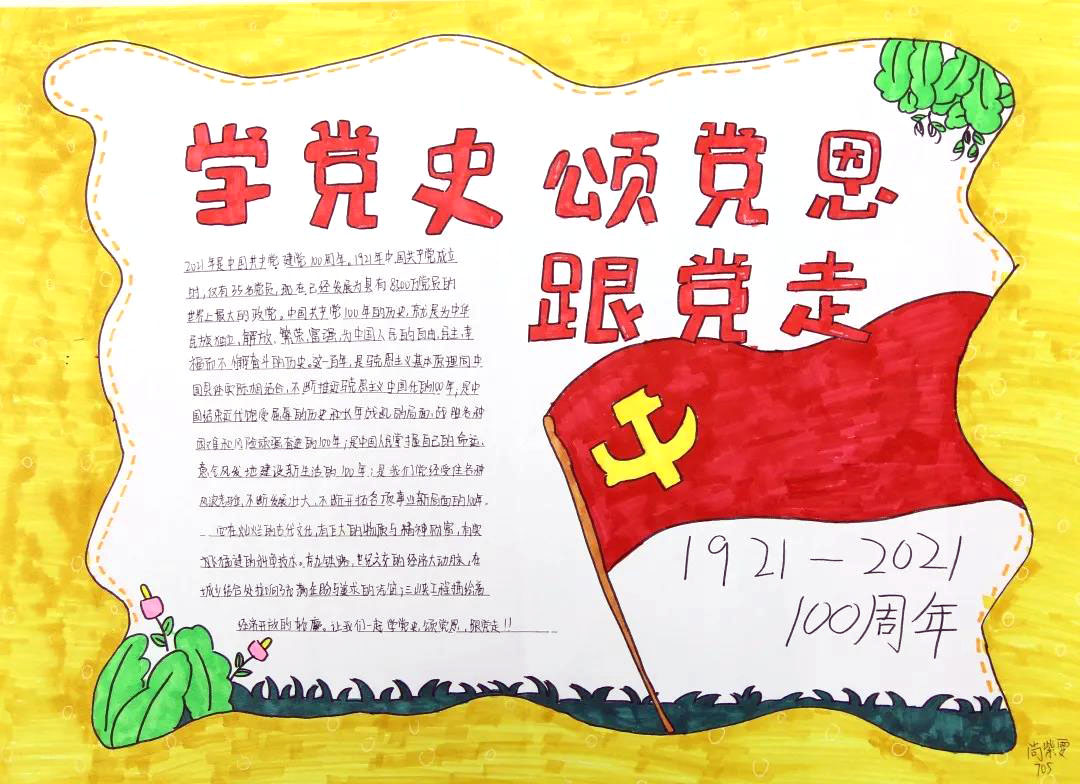 学党史 颂党恩
跟党走
2021年是中国共产党建党100周年。1921年中国共产党成立
时,仅有50多名党员,现在已经发展为具有8200万党员的
世界上最大的政党。中国共产党100年的历史,就是为中华
民族独立、解放、繁荣、富强,为中国人民的自由、民主、幸
福而不懈奋斗的历史。这一百年,是马克思主义基本原理同中
国具体实际相结合,不断推进马克思主义中国化的100年,是中
国结束近代饱受屈辱的历史和长年战乱的局面,战胜各种
困难和风险顽强奋进的100年;是中国人民掌握自己的命运,
意气风发地建设新生活的100年;是我们党经受住各种
风浪考验,不断发展壮大,不断开拓各项事业新局面的100年。
灿烂的古代文化,有巨大的物质与精神财富,有突
飞猛进的科学技术。有
城乡结合处
经济开放的轮廓。让我们一起学党史,颂党恩,跟党走!!
1921—2021
100周年
705